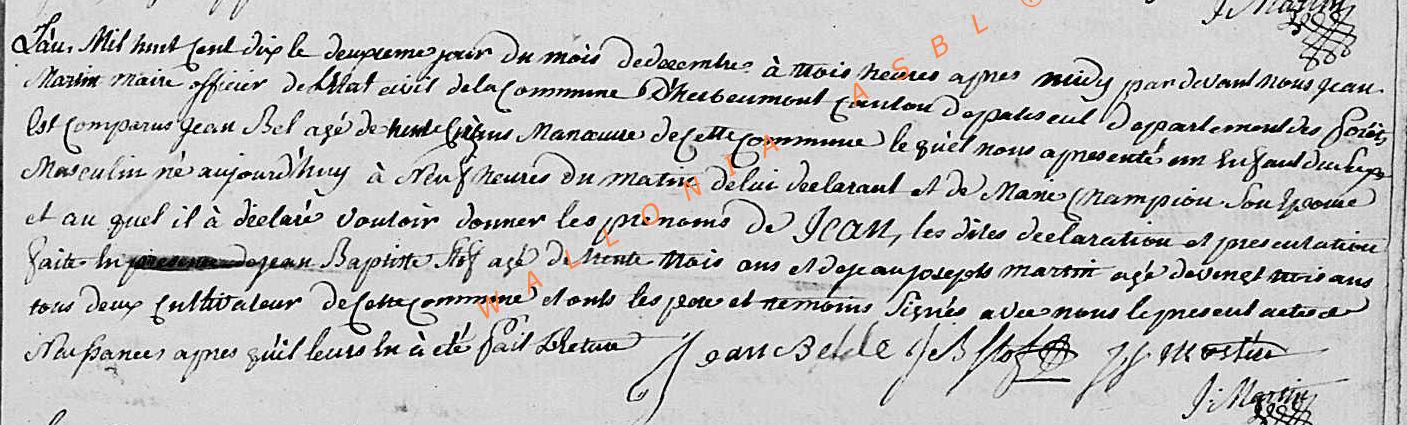 J Martin
L'an Mil huit Cent dix le deuxieme jour du mois de decembre à trois heures apres midy par devant nous Jean
Martin maire officier de L'état civil de la Commune D'herbeumont Canton de paliseul departement des forêts
Est Comparus Jean Bel agé de trente Cinq ans Manœuvre de Cette Commune le quel nous a presenté un Enfant du Sexe
Masculin né aujourd'huy à Neuf heures du matin de lui declarant et de Marie Champion Son Epouse
et au quel il à declaré vouloir donner les prenoms de Jean, les dites declaration et presentation
faite En presence de jean Baptiste Stof agé de trente trois ans et de jean joseph martin agé de vingt trois ans
tous deux Cultivateur de Cette Commune et onts les pere et temoins Signés avec nous le present acte de
Naissances apres qu'il leurs En à été fait Lecture Jean Belle J B Stof J J Martin
J: Martin
WALLONIA ASBL ©